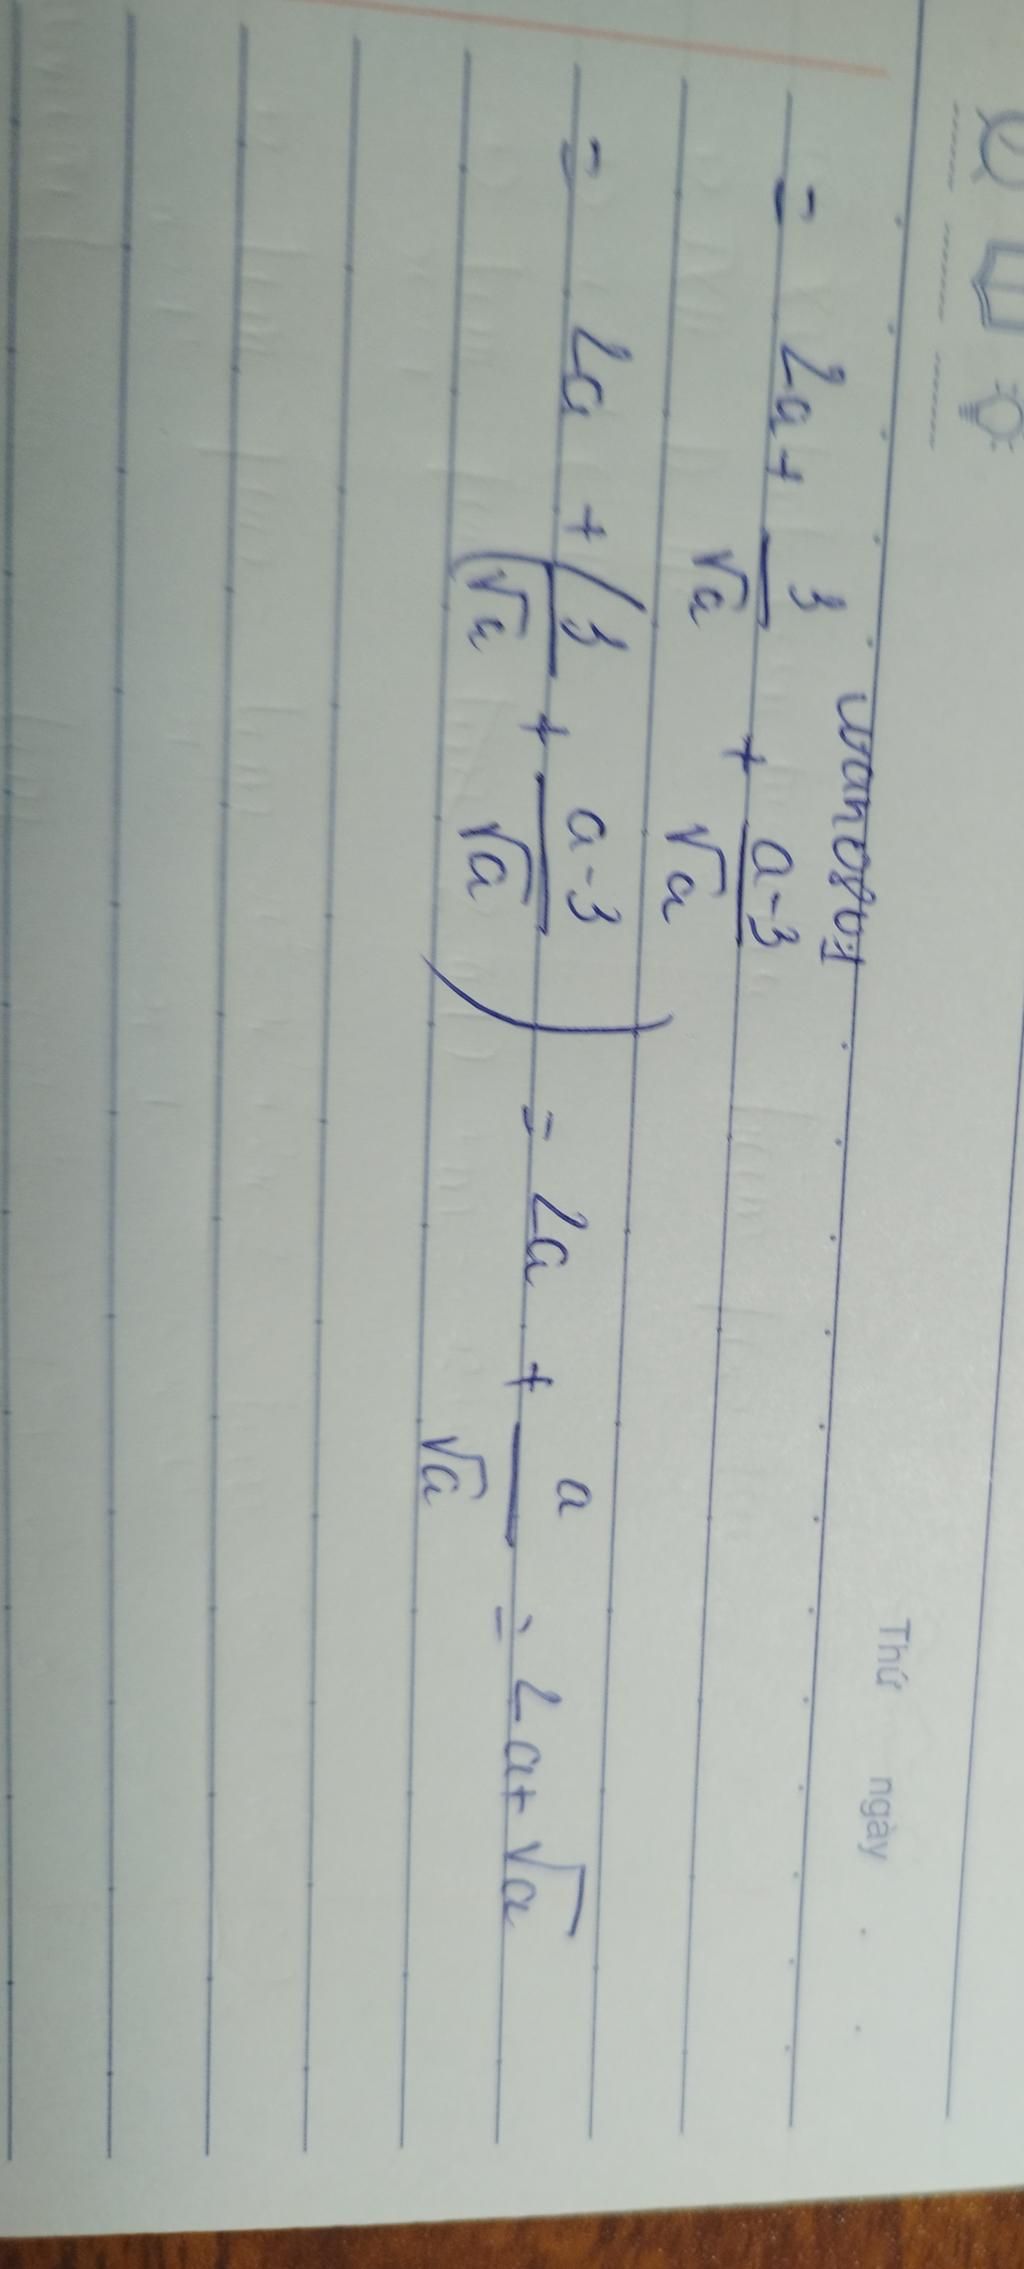 Thứ ngày
wanoğo1
= 2a + 3/√a + a-3/√a
= 2a + (3/√a + a-3/√a) = 2a + a/√a = 2a + √a